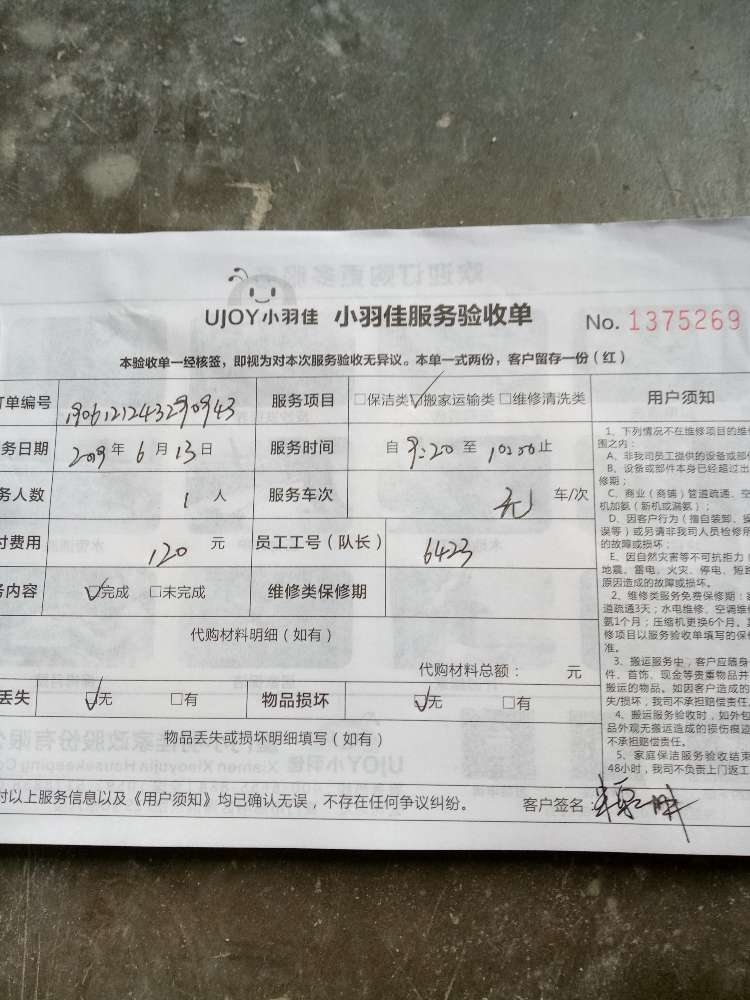 UJOY小羽佳 小羽佳服务验收单 No. 1375269
本验收单一经核签，即视为对本次服务验收无异议。本单一式两份，客户留存一份（红）
订单编号 1906121243290943 服务项目 □保洁类 ☑搬家运输类 □维修清洗类 用户须知
务日期 2019年6月13日 服务时间 自9:20至10:00止
务人数 1人 服务车次 无 车/次
付费用 120元 员工工号（队长） 6423
务内容 ☑完成 □未完成 维修类保修期
代购材料明细（如有）
代购材料总额： 元
丢失 ☑无 □有 物品损坏 ☑无 □有
物品丢失或损坏明细填写（如有）
对以上服务信息以及《用户须知》均已确认无误，不存在任何争议纠纷。 客户签名：
1、下列情况不在维修项目的维
围之内：
A、非我司员工提供的设备或部
B、设备或部件本身已经超过出
修期；
C、商业（商铺）管道疏通、空
机加氨（新机或漏氨）；
D、因客户行为（擅自装卸、操
误等）或另请非我司人员检修所
的故障或损坏；
E、因自然灾害等不可抗拒力（
地震、雷电、火灾、停电、短路
原因造成的故障或损坏。
2、维修类服务免费保修期：家
道疏通3天；水电维修、空调维
氨1个月；压缩机更换6个月。其
修项目以服务验收单填写的保修
准。
3、搬运服务中，客户应随身
件、首饰、现金等贵重物品并
搬运的物品。如因客户造成的
失/损坏，我司不承担赔偿责任。
4、搬运服务验收时，如外包
品外观无搬运造成的损伤痕迹
不承担赔偿责任。
5、家庭保洁服务验收结束
48小时，我司不负责上门返工